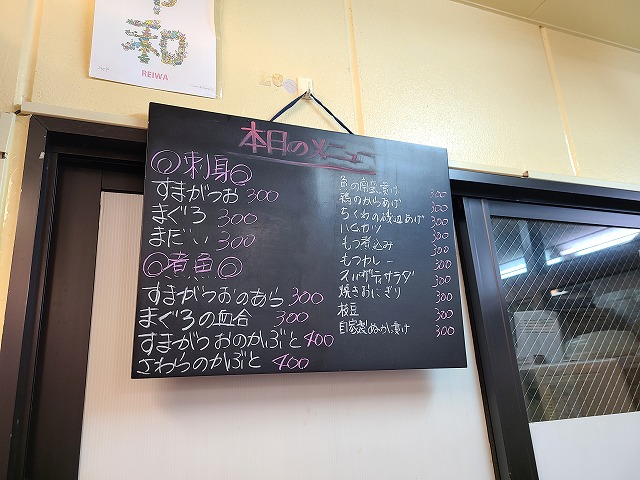 令和
REIWA
本日のメニュー
◎刺身◎
すまがつお 300
まぐろ 300
まだい 300
◎煮魚◎
すまがつおのあら 300
まぐろの血合 300
すまがつおのかぶと 400
さわらのかぶと 400
魚の南蛮漬け 300
鶏のからあげ 300
ちくわの磯辺あげ 300
ハムカツ 300
もつ煮込み 300
もつカレー 300
スパゲティサラダ 300
焼きおにぎり 300
枝豆 300
自家製ぬか漬け 300